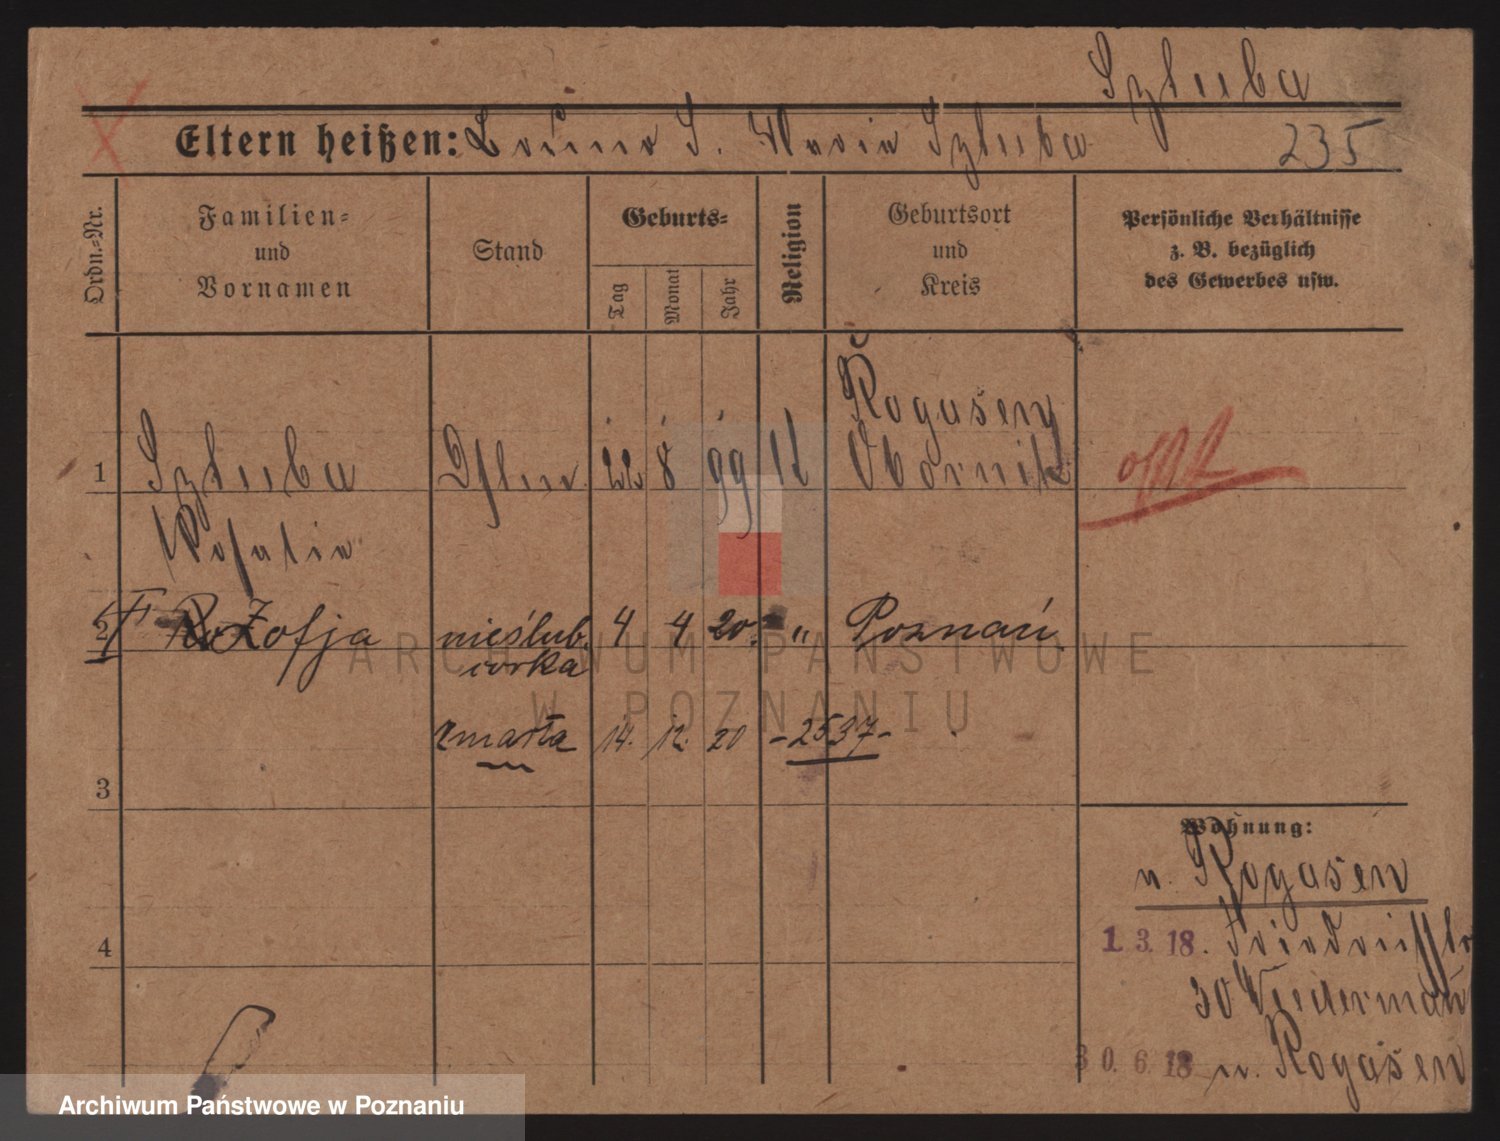 Szluba
Eltern heißen: S. Maria Szluba
235
Ordn.-Nr.
Familien-
und
Vornamen
Stand
Geburts-
Tag
Monat
Jahr
Religion
Geburtsort
und
Kreis
Persönliche Verhältnisse
z. B. bezüglich
des Gewerbes usw.
Rogasen
1 Szluba 22 8 99 Obornik
Rosalia
2 Zofja nieślub. 4 4 20. " Poznań
córka
zmarła 14. 12. 20 -2537-
3
Wohnung:
n. Rogasen
4
1. 3. 18.
30 Wiedermann
30. 6. 18 n. Rogasen
ARCHIWUM PAŃSTWOWE
W POZNANIU
Archiwum Państwowe w Poznaniu